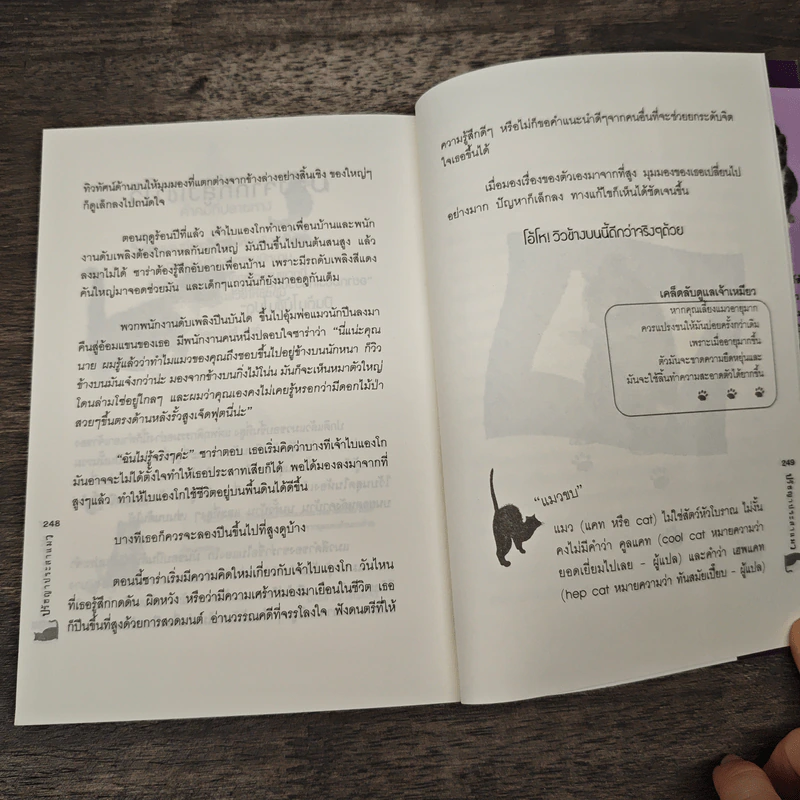 ทิวทัศน์ด้านบนให้มุมมองที่แตกต่างจากข้างล่างอย่างสิ้นเชิง ของใหญ่ๆ
ก็ดูเล็กลงไปถนัดใจ
ตอนฤดูร้อนปีที่แล้ว เจ้าไบแองโกทำเอาเพื่อนบ้านและพนัก
งานดับเพลิงต้องโกลาหลกันยกใหญ่ มันปีนขึ้นไปบนต้นสนสูง แล้ว
ลงมาไม่ได้ ซาร่าต้องรู้สึกอับอายเพื่อนบ้าน เพราะมีรถดับเพลิงสีแดง
คันใหญ่มาจอดช่วยมัน และเด็กๆแถวนั้นก็ยังมาออดูกันเต็ม
พวกพนักงานดับเพลิงปีนบันได ขึ้นไปอุ้มพ่อแมวนักปีนลงมา
คืนสู่อ้อมแขนของเธอ มีพนักงานคนหนึ่งปลอบใจซาร่าว่า “นี่แน่ะคุณ
นาย ผมรู้แล้วว่าทำไมแมวของคุณถึงชอบขึ้นไปอยู่ข้างบนนักหนา ก็วิว
ข้างบนมันเจ๋งกว่าน่ะ มองจากข้างบนกิ่งไม้โน่น มันก็จะเห็นหมาตัวใหญ่
โดนล่ามโซ่อยู่ใกล้ๆ และผมว่าคุณเองคงไม่เคยรู้หรอกว่ามีดอกไม้ป่า
สวยๆขึ้นตรงด้านหลังรั้วสูงเจ็ดฟุตนี่น่ะ”
“ฉันไม่รู้จริงๆค่ะ” ซาร่าตอบ เธอเริ่มคิดว่าบางทีเจ้าไบแองโก
มันอาจจะไม่ได้ตั้งใจทำให้เธอประสาทเสียก็ได้ พอได้มองลงมาจากที่
สูงๆแล้ว ทำให้ไบแองโกใช้ชีวิตอยู่บนพื้นดินได้ดีขึ้น
บางทีเธอก็ควรจะลองปีนขึ้นไปที่สูงดูบ้าง
ตอนนี้ซาร่าเริ่มมีความคิดใหม่เกี่ยวกับเจ้าไบแองโก วันไหน
ที่เธอรู้สึกกดดัน ผิดหวัง หรือว่ามีความเศร้าหมองมาเยือนในชีวิต เธอ
ก็ปีนขึ้นที่สูงด้วยการสวดมนต์ อ่านวรรณคดีที่จรรโลงใจ ฟังดนตรีที่ให้
248
ปรัชญาประสาแมว
ความรู้สึกดีๆ หรือไม่ก็ขอคำแนะนำดีๆจากคนอื่นที่จะช่วยยกระดับจิต
ใจเธอขึ้นได้
เมื่อมองเรื่องของตัวเองมาจากที่สูง มุมมองของเธอเปลี่ยนไป
อย่างมาก ปัญหาก็เล็กลง ทางแก้ไขก็เห็นได้ชัดเจนขึ้น
โอ้โห! วิวข้างบนนี้ดีกว่าจริงๆด้วย
เคล็ดลับดูแลเจ้าเหมียว
หากคุณเลี้ยงแมวอายุมาก
ควรแปรงขนให้มันบ่อยครั้งกว่าเดิม
เพราะเมื่ออายุมากขึ้น
ตัวมันจะขาดความยืดหยุ่นและ
มันจะใช้ลิ้นทำความสะอาดตัวได้ยากขึ้น
“แมวขบ”
แมว (แคท หรือ cat) ไม่ใช่สัตว์หัวโบราณ ไม่งั้น
คงไม่มีคำว่า คูลแคท (cool cat หมายความว่า
ยอดเยี่ยมไปเลย - ผู้แปล) และคำว่า เฮพแคท
(hep cat หมายความว่า ทันสมัยเปี๊ยบ - ผู้แปล)
249
ปรัชญาประสาแมว